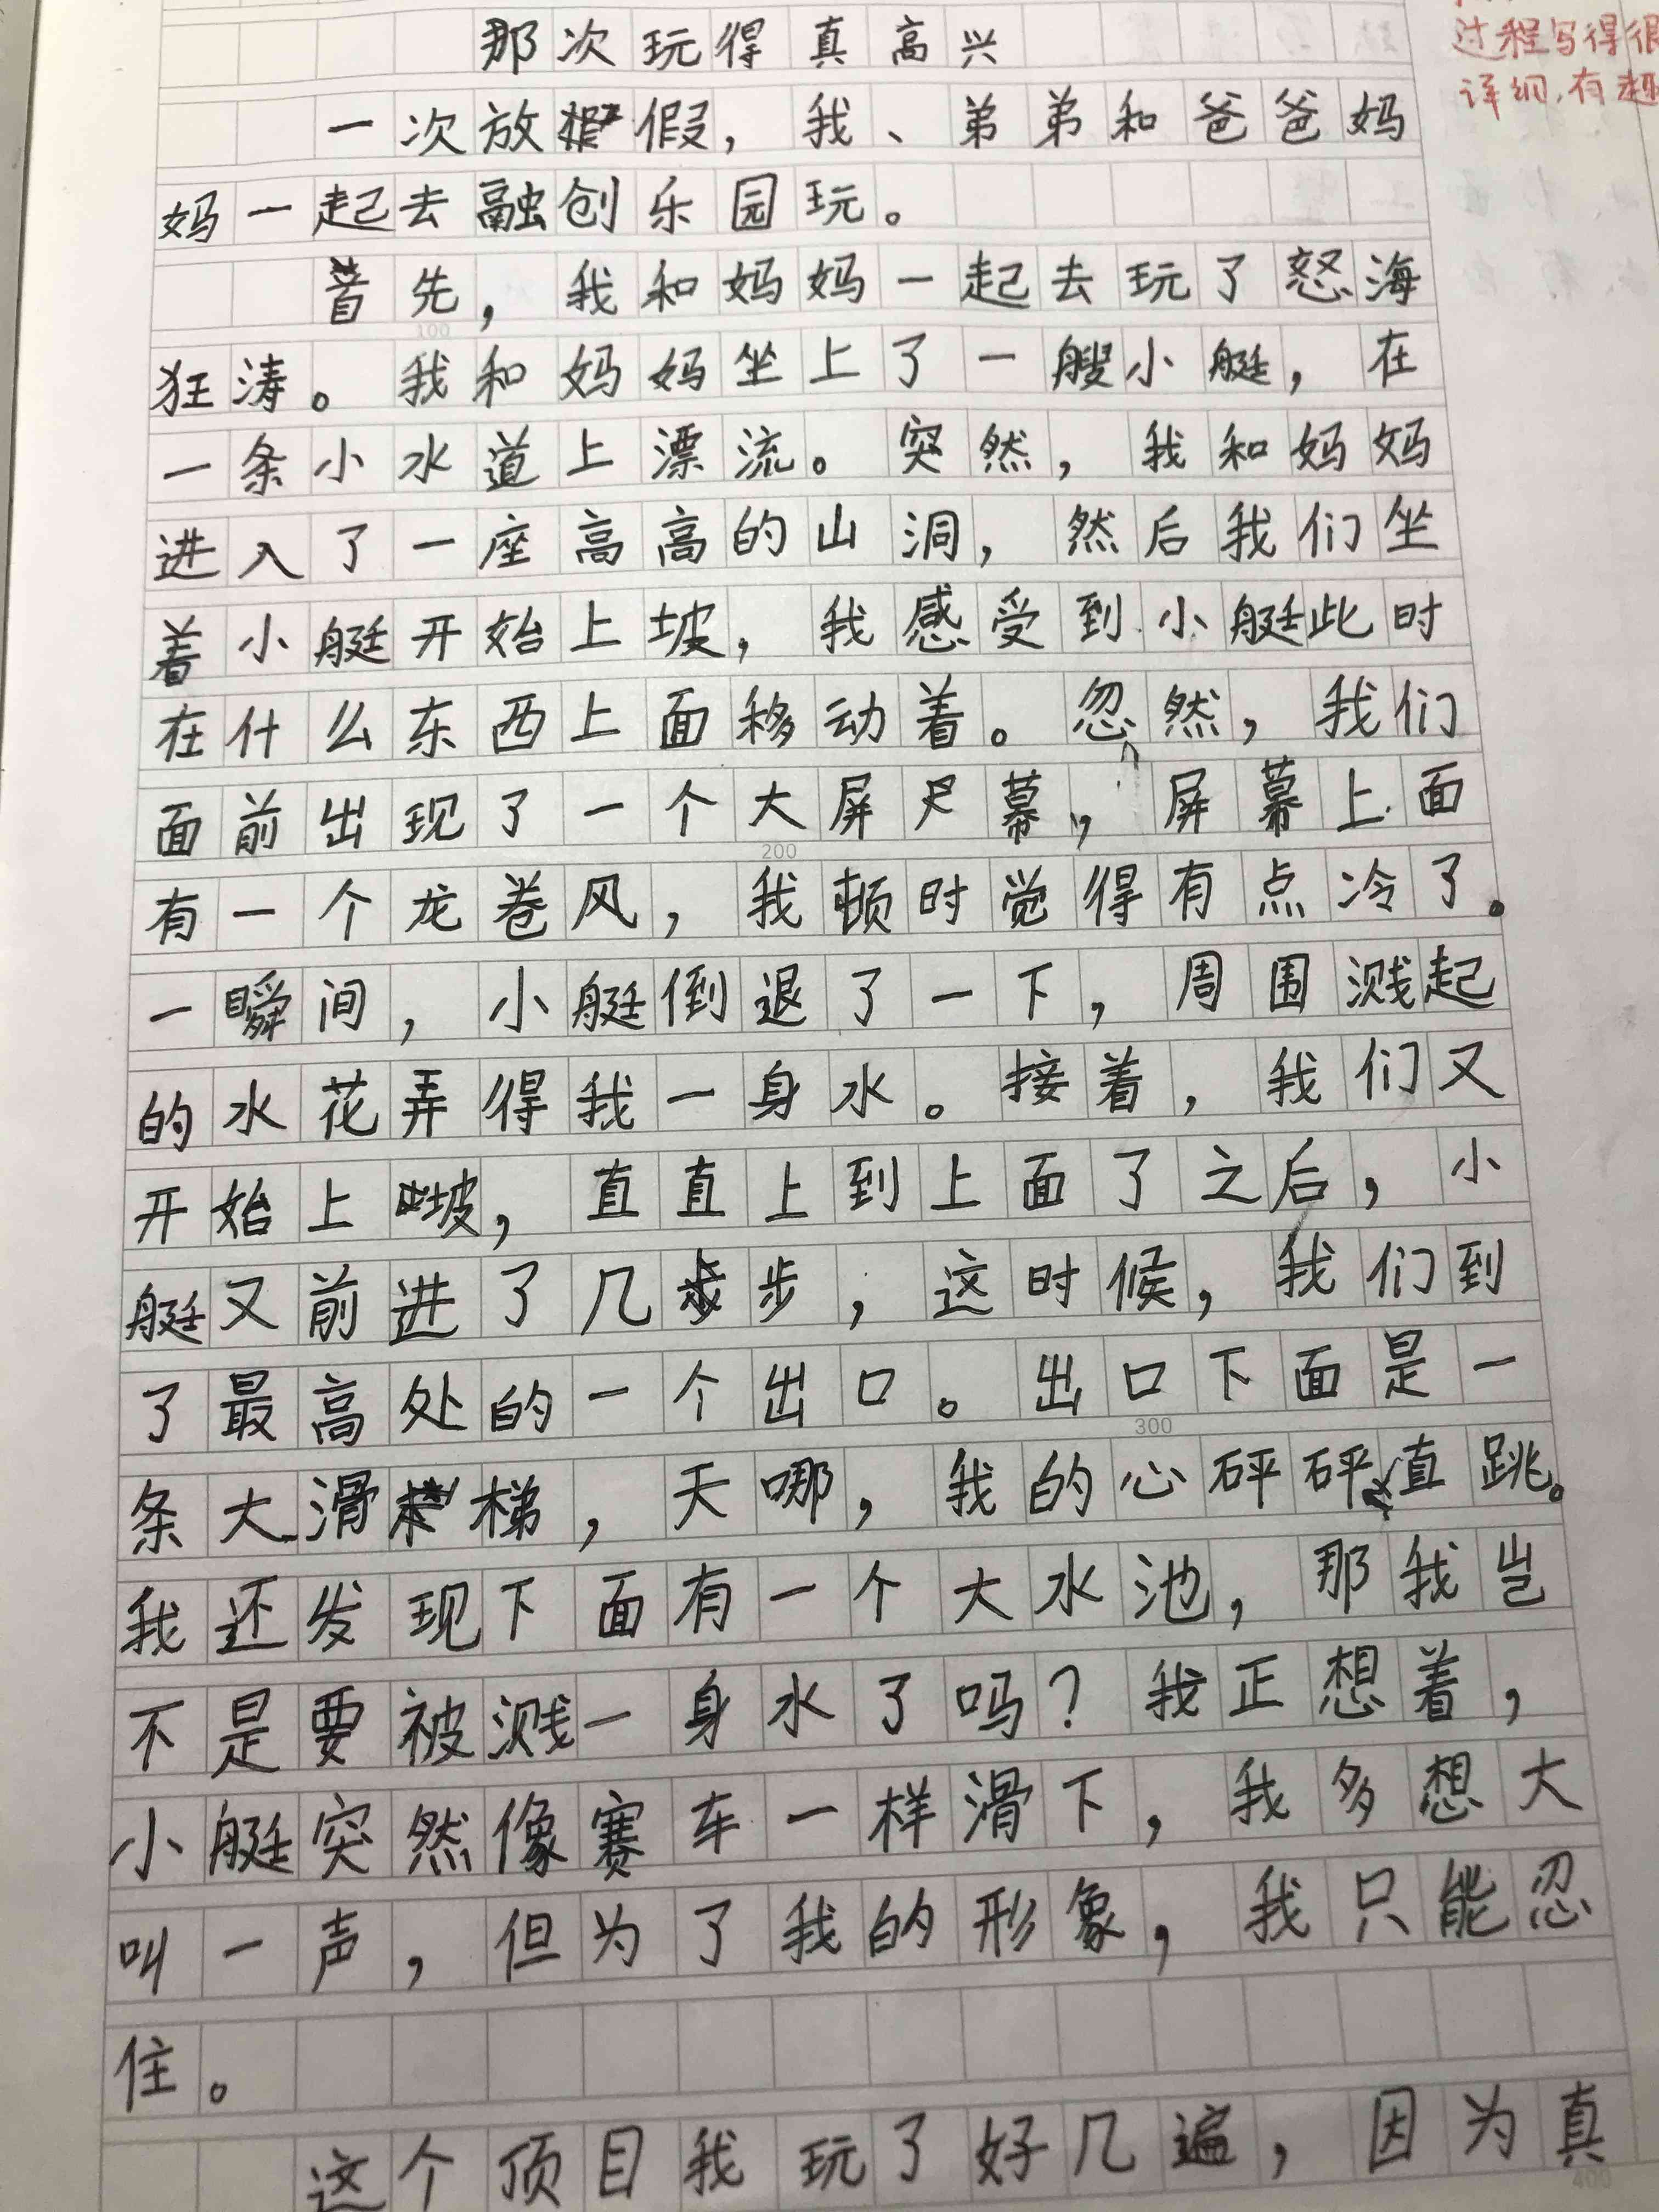 那次玩得真高兴
过程写得很
详细，有趣
一次放假，我、弟弟和爸爸妈
妈一起去融创乐园玩。
首先，我和妈妈一起去玩了怒海
100
狂涛。我和妈妈坐上了一艘小艇，在
一条小水道上漂流。突然，我和妈妈
进入了一座高高的山洞，然后我们坐
着小艇开始上坡，我感受到小艇此时
在什么东西上面移动着。忽然，我们
面前出现了一个大屏尺幕，屏幕上面
200
有一个龙卷风，我顿时觉得有点冷了。
一瞬间，小艇倒退了一下，周围溅起
的水花弄得我一身水。接着，我们又
开始上坡，直直上到上面了之后，小
艇又前进了几步，这时候，我们到
了最高处的一个出口。出口下面是一
300
条大滑梯，天哪，我的心砰砰直跳。
我还发现下面有一个大水池，那我岂
不是要被溅一身水了吗？我正想着，
小艇突然像赛车一样滑下，我多想大
叫一声，但为了我的形象，我只能忍
住。
这个项目我玩了好几遍，因为真
400